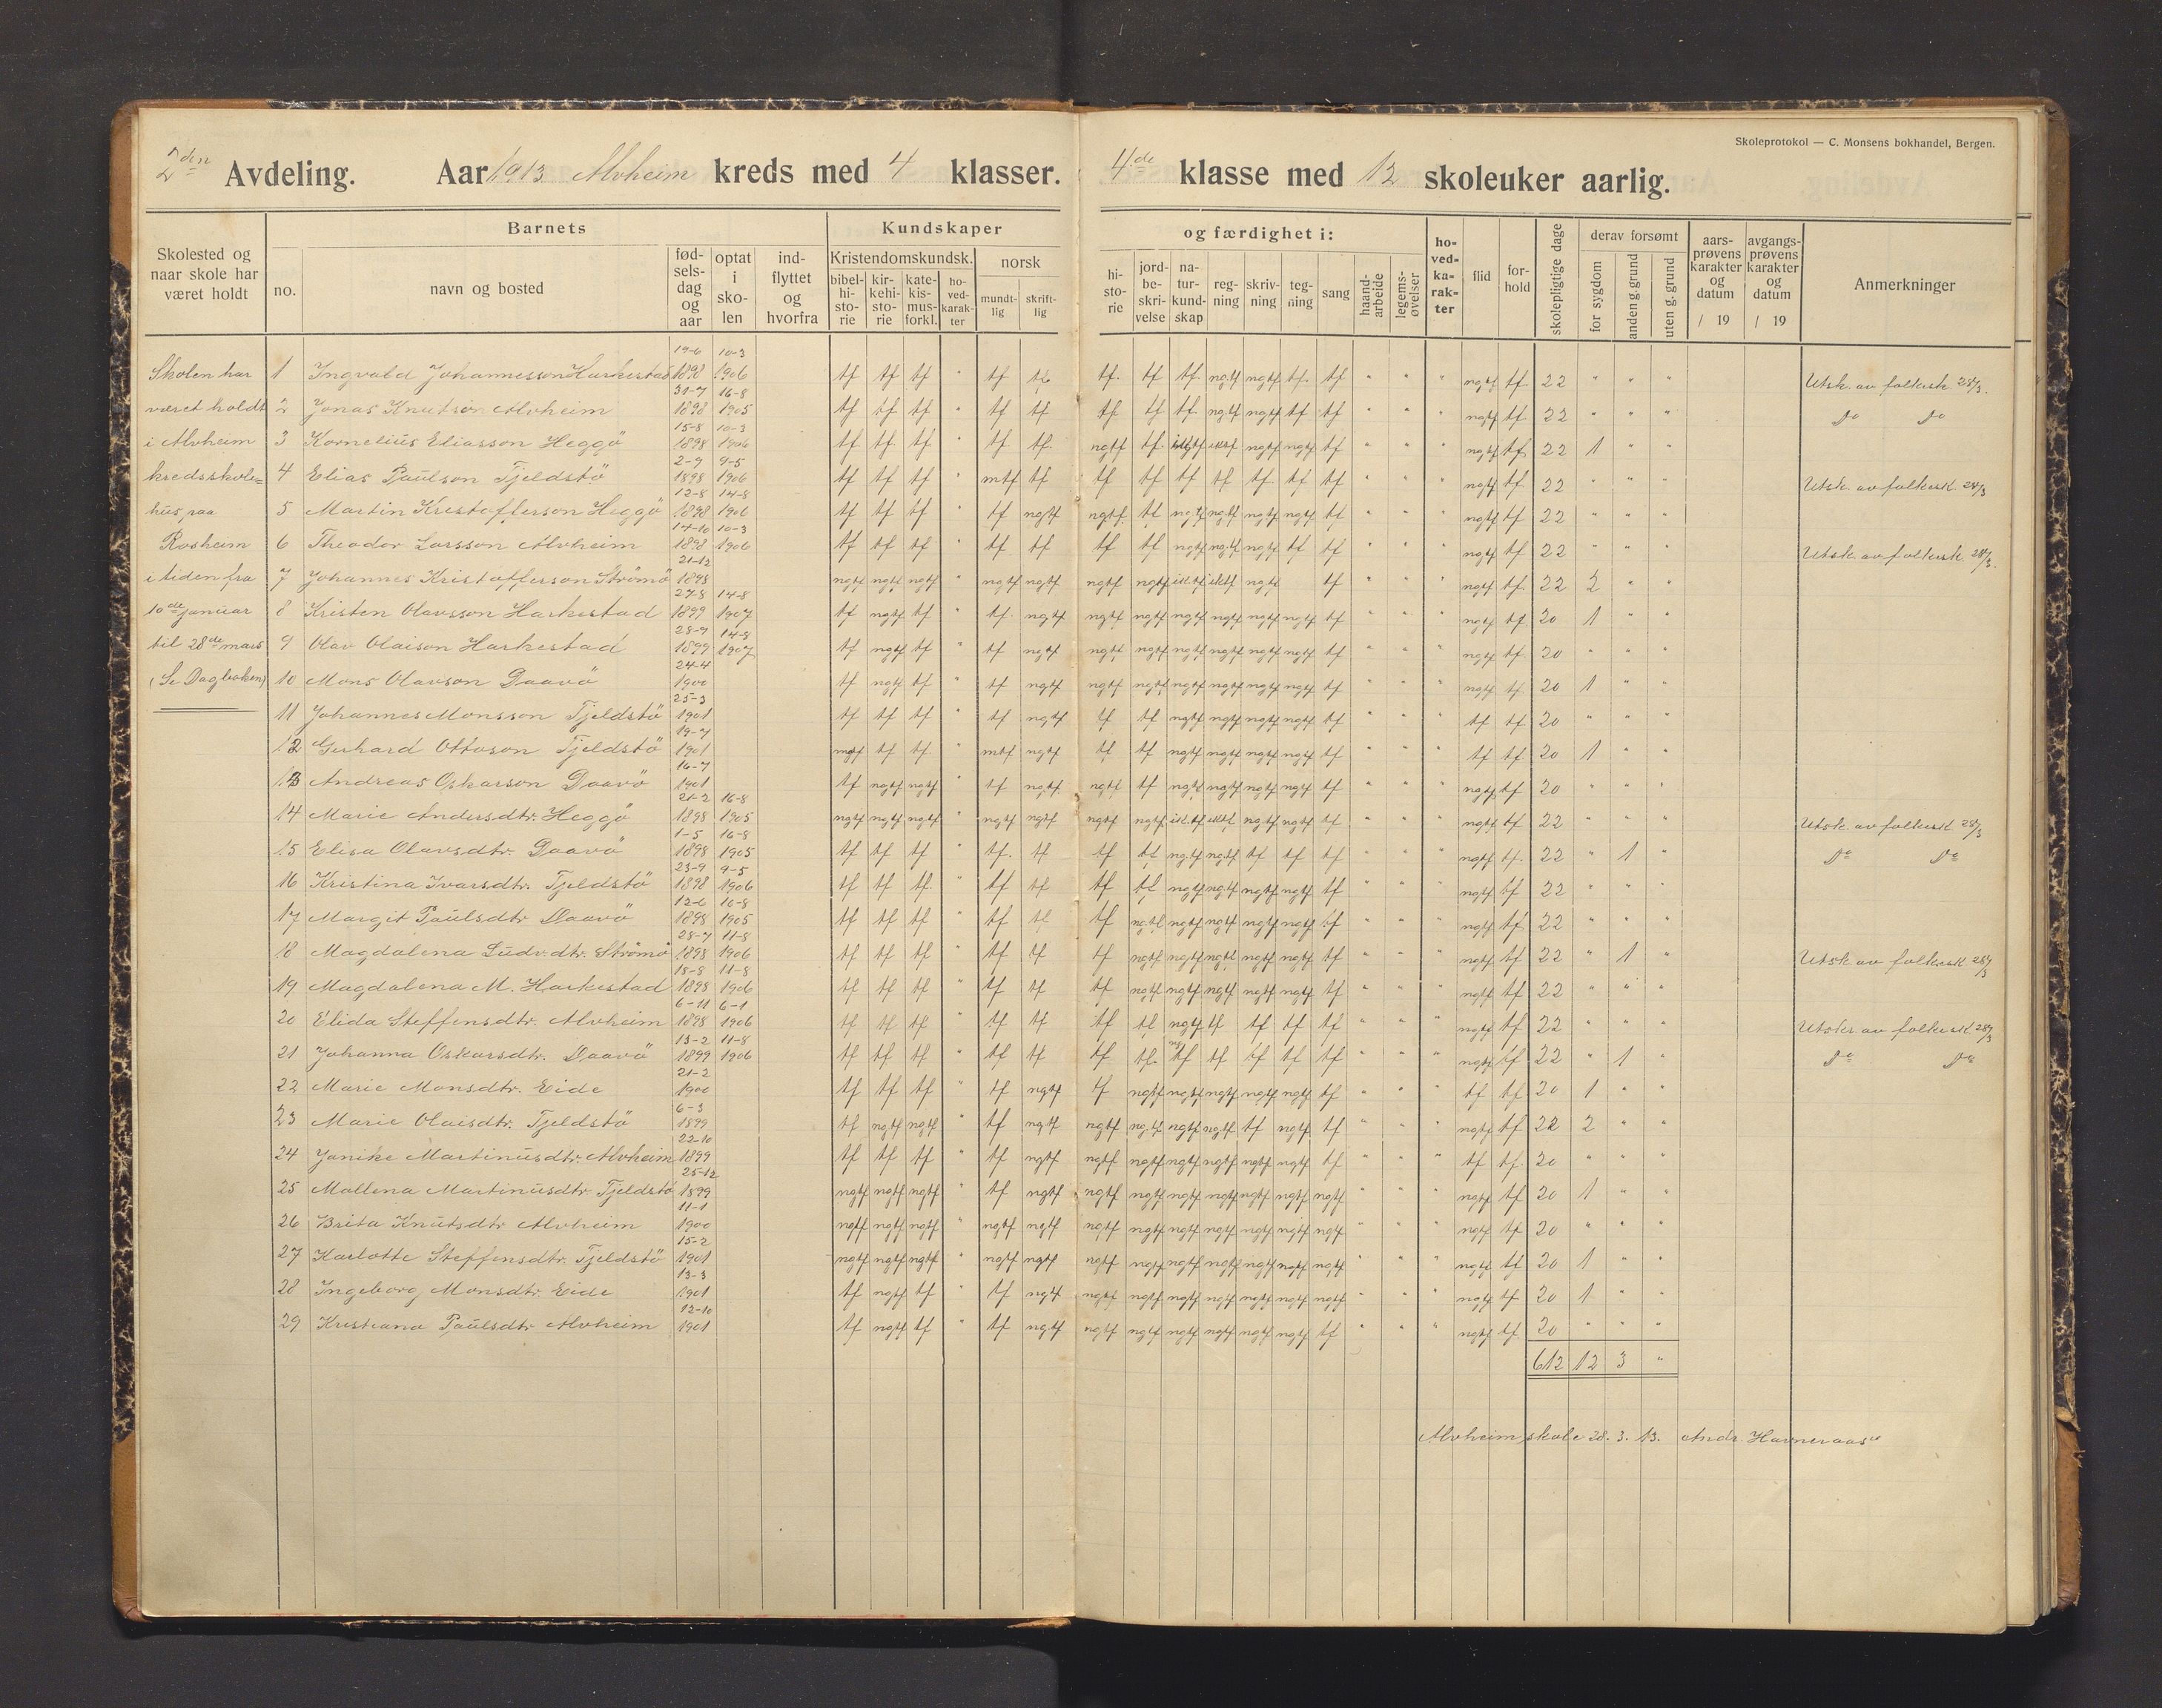 Skoleprotokol — C. Monsens bokhandel, Bergen.
2den Avdeling. Aar 1913 Alvheim kreds med 4 klasser. 4de klasse med 12 skoleuker aarlig.
Skolested og naar skole har været holdt
Barnets
no.
navn og bosted
fødselsdag og aar
optat i skolen
indflyttet og hvorfra
Kundskaper og færdighet i:
Kristendomskundsk.
bibelhistorie
kirkehistorie
katekismusforkl.
hovedkarakter
norsk
mundtlig
skriftlig
historie
jordbeskrivelse
naturkundskap
regning
skrivning
tegning
sang
haandarbeide
legemsøvelser
hovedkarakter
flid
forhold
skolepligtige dage
derav forsømt
for sygdom
anden g. grund
uten g. grund
aarsprøvens karakter og datum / 19
avgangsprøvens karakter og datum / 19
Anmerkninger
Skolen har
været holdt
i Alvheim
kredsskole=
hus paa
Rosheim
i tiden fra
10de januar
til 28de mars
(Se Dagboken)
1 Ingvald Johannesson Harkestad 19-6 1898 10-3 1906 tf tf tf " tf tf tf tf tf ngtf ngtf tf tf " " " ngtf tf 22 " " " Utsk. av folkesk. 28/3.
2 Jonas Knutson Alvheim 31-7 1898 16-8 1905 tf tf tf " tf tf tf tf tf ngtf ngtf tf tf " " " ngtf tf 22 " " " Do Do
3 Kornelius Eliasson Heggö 15-8 1898 10-3 1906 tf tf tf " tf tf ngtf tf ikktf ngtf ngtf tf " " " ngtf tf 22 1 " "
4 Elias Paulson Tjeldstö 2-9 1898 9-5 1906 tf tf tf " mtf tf tf tf tf tf tf tf tf " " " ngtf tf 22 " " " Utsk. av folkesk. 28/3
5 Martin Kristofferson Heggö 12-8 1898 14-8 1906 tf tf tf " tf ngtf ngtf tf ngtf ngtf ngtf ngtf tf " " " ngtf tf 22 " " "
6 Theodor Larsson Alvheim 14-10 1898 10-3 1906 tf tf tf " tf tf tf tf ngtf ngtf ngtf tf tf " " " ngtf tf 22 " " " Utsk. av folkesk. 28/3.
7 Johannes Kristofferson Strömö 21-12 1898 ngtf ngtf ngtf " ngtf ngtf ngtf ngtf ikktf ikktf ngtf tf " " " ngtf tf 22 2 " "
8 Kristen Olavsson Harkestad 27-8 1899 14-8 1907 tf ngtf tf " tf ngtf ngtf ngtf ngtf ngtf ngtf ngtf tf " " " ngtf tf 20 1 " "
9 Olav Olaison Harkestad 28-7 1899 14-8 1907 tf ngtf tf " tf ngtf ngtf ngtf ngtf ngtf ngtf ngtf tf " " " ngtf tf 20 " " "
10 Mons Olavson Daavö 24-4 1900 tf ngtf tf " tf ngtf ngtf ngtf ngtf ngtf ngtf ngtf tf " " " ngtf tf 20 1 " "
11 Johannes Monsson Tjeldstö 25-3 1901 tf tf tf " tf ngtf tf tf ngtf ngtf ngtf ngtf tf " " " tf tf 20 " " "
12 Gerhard Ottoson Tjeldstö 19-7 1901 mtf tf tf " mtf ngtf tf tf ngtf ngtf ngtf ngtf tf " " " tf tf 20 1 " "
13 Andreas Oskarson Daavö 16-7 1901 tf ngtf ngtf " tf ngtf ngtf tf ngtf ngtf ngtf ngtf tf " " " ngtf tf 20 " " "
14 Marie Andersdtr. Heggö 21-2 1898 16-8 1905 ngtf ngtf ngtf " ngtf ngtf ngtf ngtf ikktf ikktf ngtf ngtf tf " " " ngtf tf 22 " " " Utsk. av folkesk 28/3
15 Elisa Olavsdtr. Daavö 1-5 1898 16-8 1905 tf tf tf " tf tf tf tf ngtf ngtf tf tf tf " " " ngtf tf 22 " 1 " Do Do
16 Kristina Ivarsdtr. Tjeldstö 23-9 1898 9-5 1906 tf tf tf " tf tf tf tf ngtf ngtf ngtf ngtf tf " " " ngtf tf 22 " " "
17 Margit Paulsdtr Daavö 12-6 1898 10-8 1905 tf tf tf " tf tf tf ngtf ngtf ngtf ngtf ngtf tf " " " ngtf tf 22 " " "
18 Magdalena Ludv.dtr. Strömö 28-7 1898 11-8 1906 tf tf tf " tf tf tf ngtf ngtf ngtf ngtf ngtf tf " " " ngtf tf 22 " 1 " Utsk. av folkesk 28/3
19 Magdalena M. Harkestad 18-8 1898 11-8 1906 tf tf tf " tf tf tf ngtf ngtf ngtf ngtf ngtf tf " " " ngtf tf 22 " " "
20 Elida Steffensdtr. Alvheim 6-11 1898 6-1 1906 tf tf tf " tf tf tf tf ngtf tf tf tf tf " " " ngtf tf 22 " " " Utskr av folkesk. 28/3
21 Johanna Oskarsdtr. Daavö 13-2 1899 11-8 1906 tf tf tf " tf tf tf tf ngtf tf tf tf tf " " " ngtf tf 22 " 1 " Do Do
22 Marie Monsdtr. Eide 21-2 1900 tf tf tf " tf ngtf tf ngtf ngtf ngtf ngtf ngtf tf " " " tf tf 20 1 " "
23 Marie Olaisdtr. Tjeldstö 6-3 1899 tf ngtf ngtf " tf ngtf ngtf ngtf ngtf ngtf tf ngtf tf " " " ngtf tf 22 2 " "
24 Janike Martinusdtr. Alvheim 22-10 1899 tf tf tf " tf ngtf ngtf ngtf ngtf ngtf ngtf ngtf tf " " " tf tf 20 " " "
25 Mallena Martinusdtr Tjeldstö 25-12 1899 ngtf ngtf ngtf " tf ngtf ngtf ngtf ngtf ngtf ngtf ngtf ngtf " " " ngtf tf 20 1 " "
26 Brita Knutsdtr Alvheim 11-1 1900 ngtf ngtf ngtf " ngtf ngtf ngtf ngtf ngtf ngtf ngtf ngtf ngtf " " " ngtf tf 20 " " "
27 Karlotte Steffensdtr. Tjeldstö 15-2 1901 ngtf ngtf ngtf " ngtf ngtf ngtf ngtf ngtf ngtf ngtf ngtf ngtf " " " ngtf tf 20 1 " "
28 Ingeborg Monsdtr. Eide 13-3 1901 tf ngtf tf " tf ngtf ngtf ngtf ngtf ngtf ngtf ngtf ngtf " " " ngtf tf 20 1 " "
29 Kristiana Paulsdtr Alvheim 12-10 1901 tf ngtf tf " tf ngtf ngtf ngtf ngtf ngtf ngtf ngtf tf " " " ngtf tf 20 " " "
612 12 3 "
Alvheim skole 28. 3. 13. Andr. Havneraas